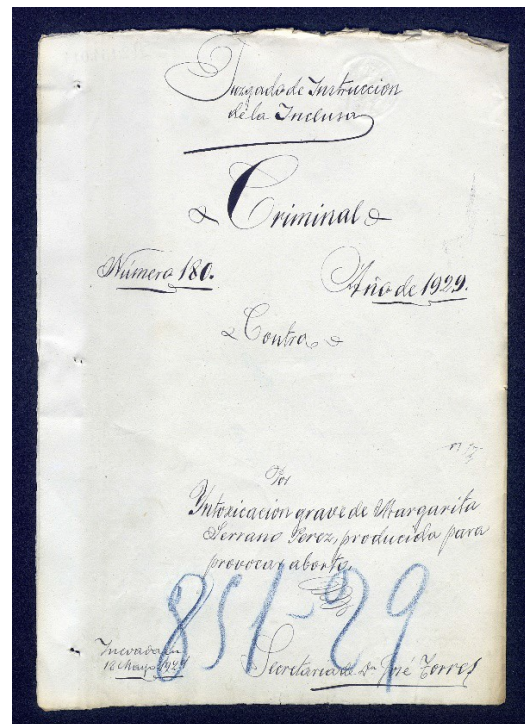 Juzgado de Instruccion
de la Inclusa
Criminal
Número 180.
Año de 1929.
Contra
Por
Intoxicación grave de Margarita
Serrano Perez, producida para
provocar aborto
851-29
Incoada en
18 Mayo 1929
Secretaria de Dn José Torres